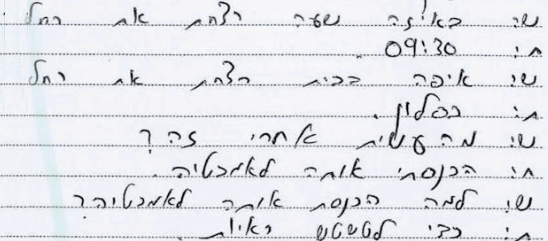 ש: באיזה שעה רצחת את רחל
ת: 09:30.
ש: איפה בבית רצחת את רחל
ת: בסלון.
ש: מה עשית אחרי זה?
ת: הכנסתי אותה לאמבטיה.
ש: למה הכנסת אותה לאמבטיה?
ת: כדי לטשטש ראיות.